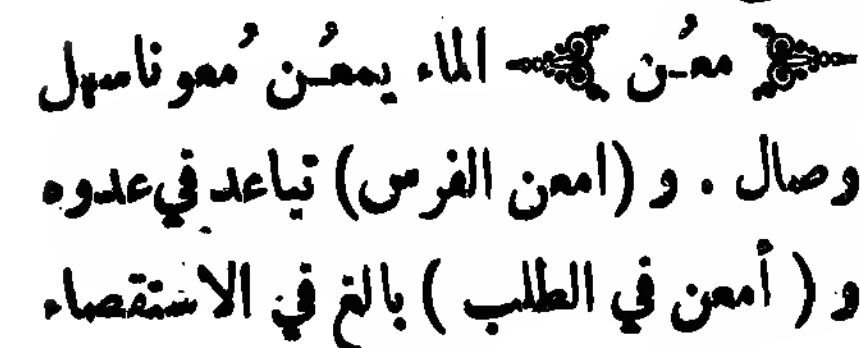 ﴿ معُن ﴾ الماء يمعُن مُعوناسهل
وصال . و (امعن الفرس) تباعد في عدوه
و ( أمعن في الطلب ) بالغ في الاستقصاء